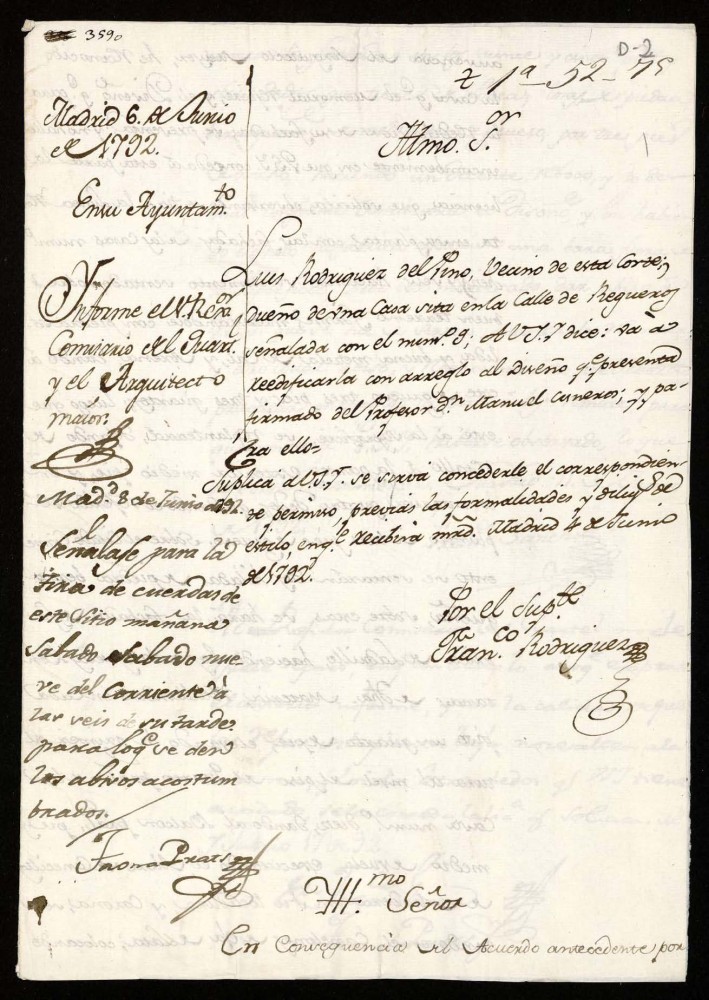 3590
D-2
1ª 52-75
Madrid 6. de Junio
de 1792.
En su Ayuntam.to
Informe el S.r Rex.or
Comisario del Quart.l
y el Arquitecto
maior.
Mad.d 8 de Junio de 792.
Señalase para la
tira de cuerdas de
este Sitio mañana
Sabado Sabado nue-
ve del Corriente à
las seis de su tarde
para lo q.e se den
los abisos acostum
brados.
Prats
Illmo. S.or
Luis Rodriguez del Pino, Vecino de esta Corte, y
dueño de vna Casa sita en la Calle de Regueros
señalada con el num.o 9; à V.S.Y. dice: va à
reedificarla con arreglo al Diseño q.e presenta
firmado del Profesor d.n Manuel Cisneros; y pa-
ra ello=
Suplica à V.S.Y. se sirva concederle el correspondien-
te permiso, previas las formalidades y dilig.s de
estilo, en q.e recibirà mrd. Madrid 4 de Junio
de 1792.
Por el Sup.te
Fran.co Rodriguez
Ill.mo Señor
En Consequencia del Acuerdo antecedente por